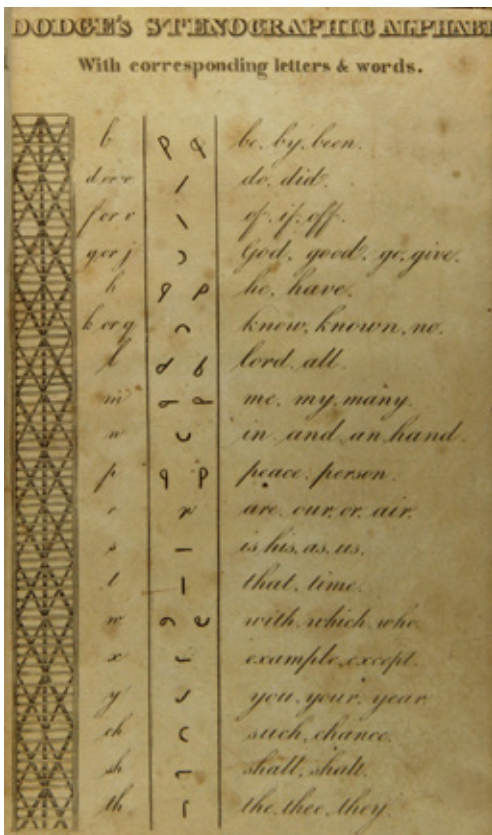 DODGE'S STENOGRAPHIC ALPHABE
With corresponding letters & words.
b be. by. been.
d or do. did.
f or v of. if. off.
g or j God. good. go. give.
h he. have.
k or q know. known. no.
l lord. all.
m me. my. many.
n in. and. an. hand.
p peace. person.
r are. our. or. air.
s is. his. as. us.
t that. time.
w with. which. who.
x example. except.
y you. your. year.
ch such. chance.
sh shall. shalt.
th the. thee. they.